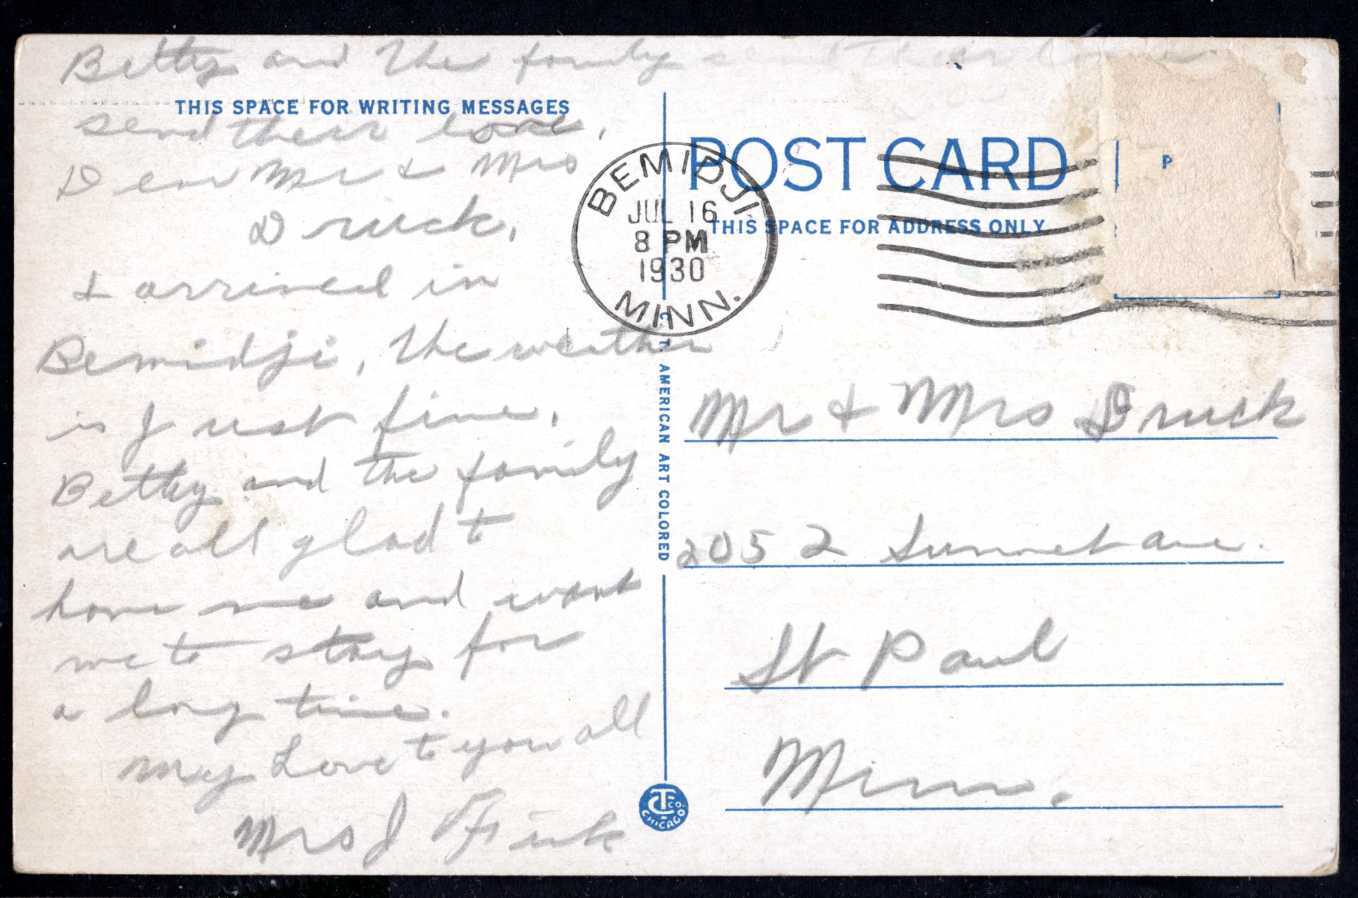 Betty and the family send their love
THIS SPACE FOR WRITING MESSAGES
send their love,
Dear Mr & Mrs
Druck,
I arrived in
Bemidji, the weather
is Just fine,
Betty and the family
are all glad to
have me and want
me to stay for
a long time.
My Love to you all
Mrs J Fink
BEMIDJI
JUL 16
8 PM
1930
MINN.
POST CARD
THIS SPACE FOR ADDRESS ONLY
P
C. T. AMERICAN ART COLORED
Mr & Mrs Druck
2052 Summet ave.
St Paul
Minn.
CT CO
CHICAGO